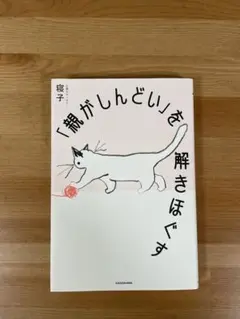 「親がしんどい」を
解きほぐす
寝子
KADOKAWA